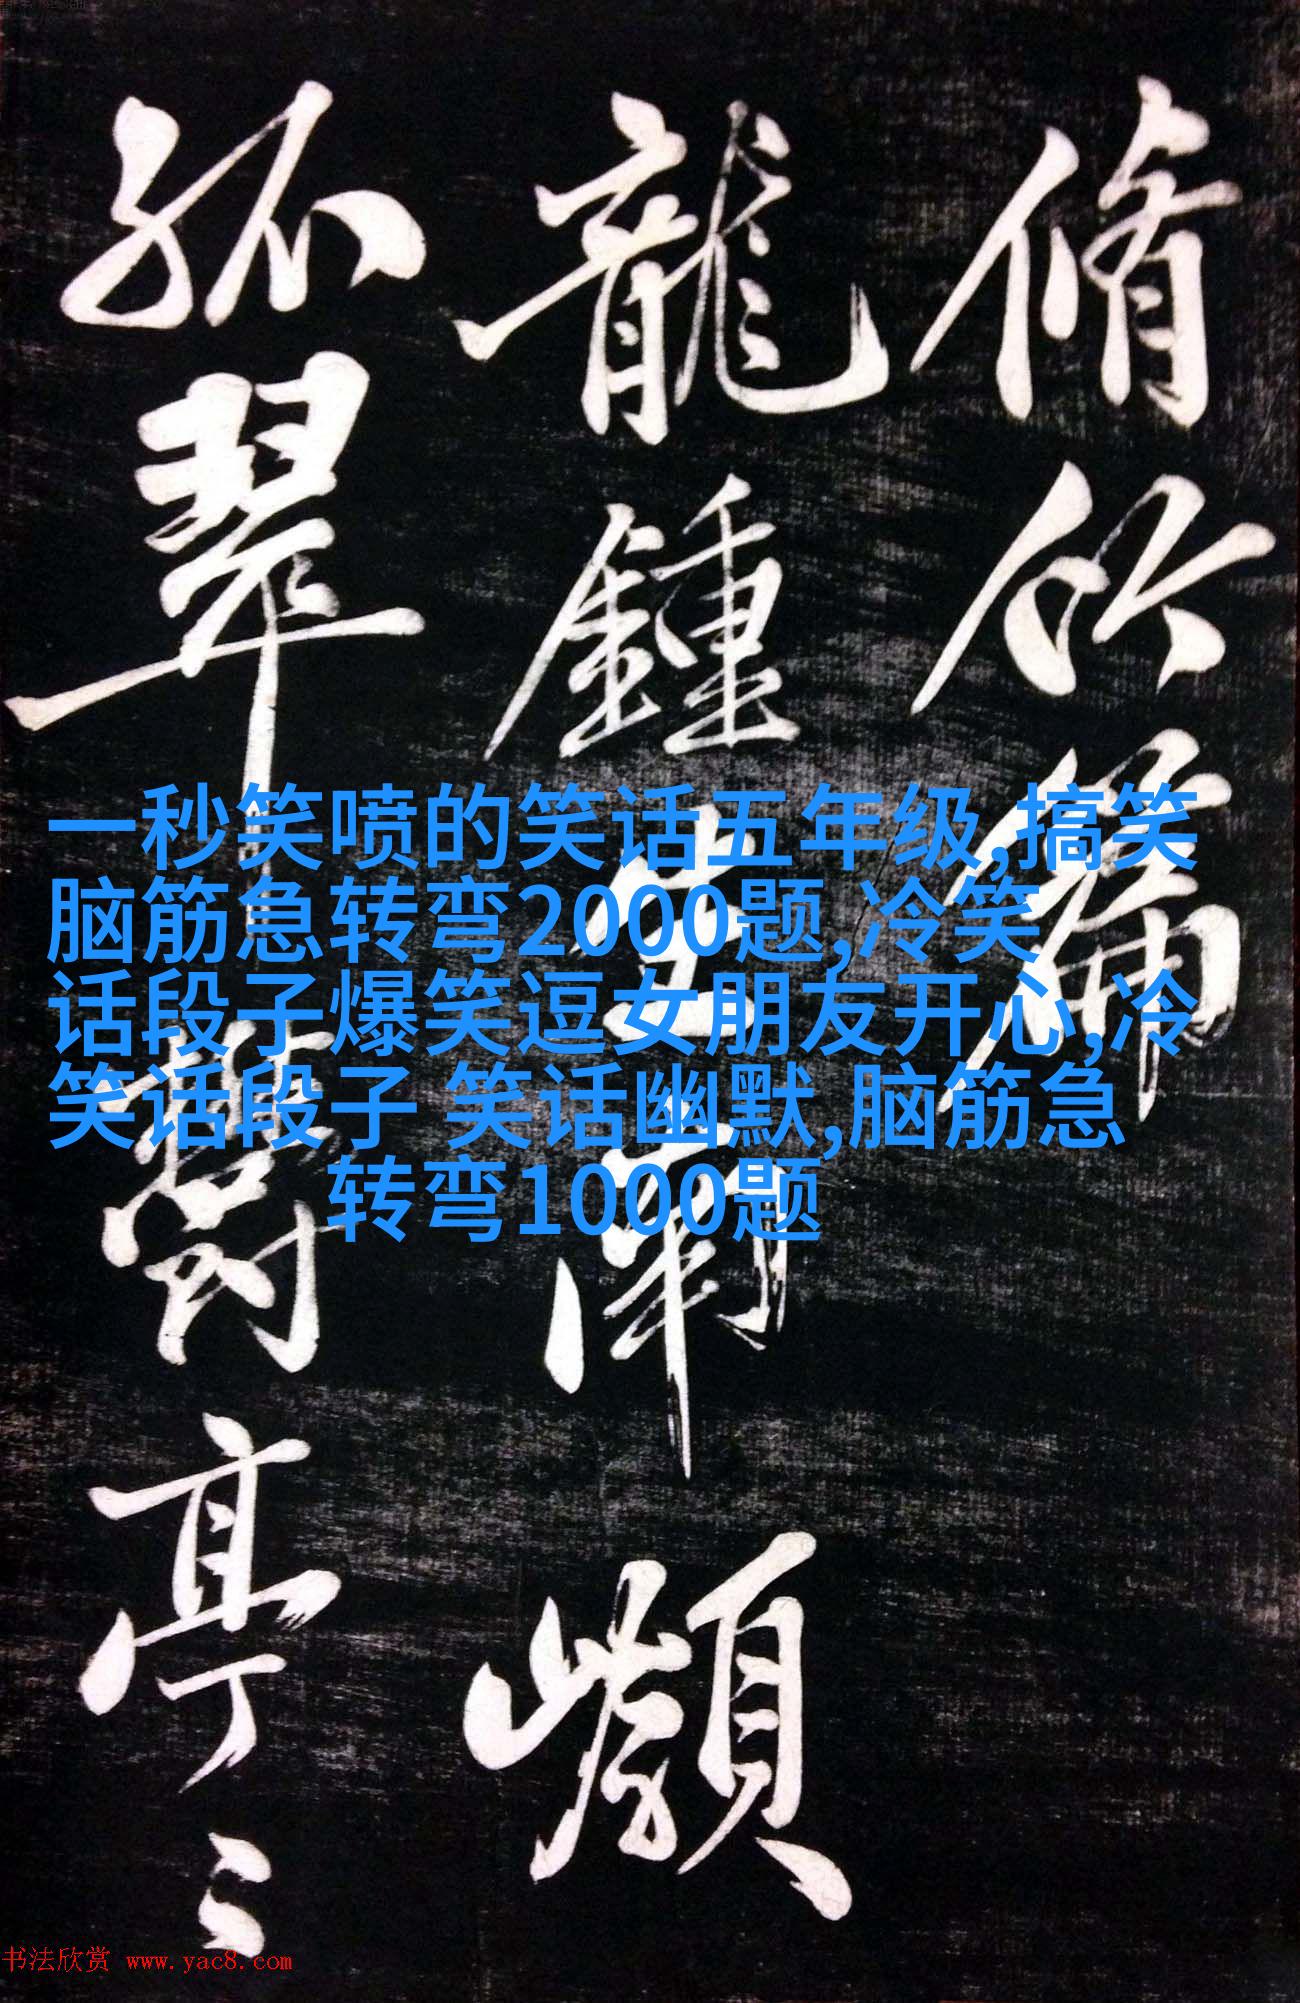 脩竹篇
龍鍾生南
孤翠鬱亭〻
一秒笑喷的笑话五年级,搞笑
脑筋急转弯2000题,冷笑
话段子爆笑逗女朋友开心,冷
笑话段子 笑话幽默,脑筋急
转弯1000题
书法欣赏 www.yac8.com